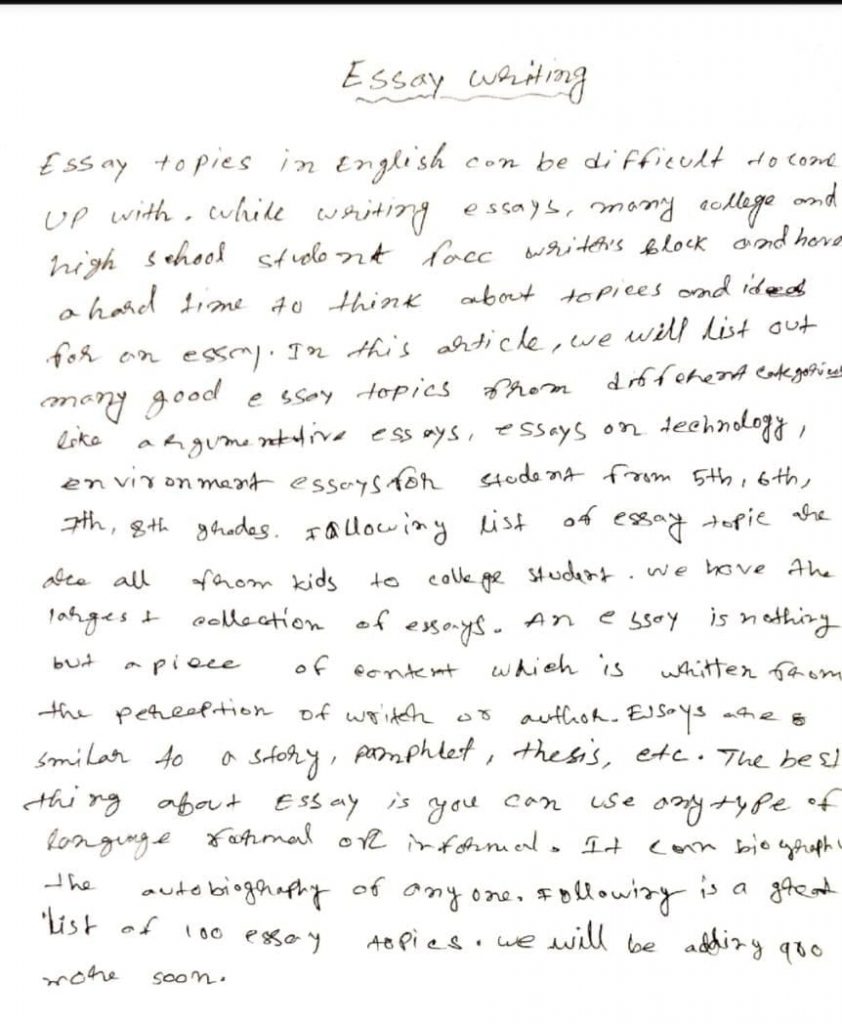 Essay writing
Essay topics in English can be difficult to come
up with. While writing essays, many college and
high school student face writer's block and have
a hard time to think about topices and ideas
for an essay. In this article, we will list out
many good essay topics from different categories
like argumentative essays, essays on technology,
environment essays for student from 5th, 6th,
7th, 8th grades. Following list of essay topic are
are all from kids to college student. We have the
largest collection of essays. An essay is nothing
but a piece of content which is written from
the perception of writer or author. Essays are
similar to a story, pamphlet, thesis, etc. The best
thing about Essay is you can use any type of
language formal or informal. It can biography
the autobiography of anyone. Following is a great
list of 100 essay topics. we will be adding 400
more soon.